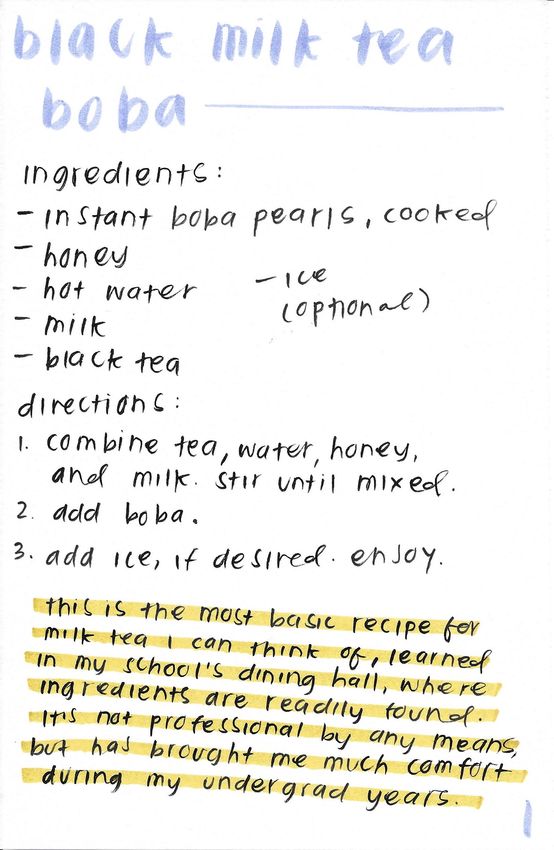 black milk tea
boba
ingredients:
- instant boba pearls, cooked
- honey
- hot water
- milk
- black tea
- ice
(optional)
directions:
1. combine tea, water, honey,
and milk. stir until mixed.
2. add boba.
3. add ice, if desired. enjoy.
this is the most basic recipe for
milk tea i can think of, learned
in my school's dining hall, where
ingredients are readily found.
it's not professional by any means,
but has brought me much comfort
during my undergrad years.